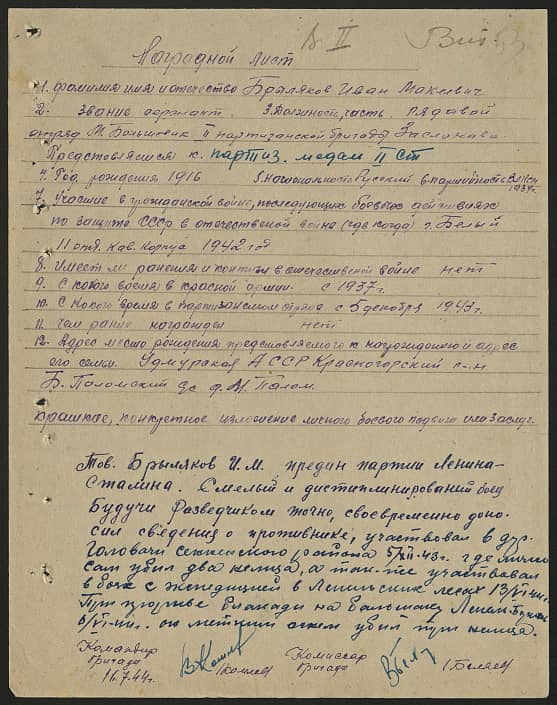 II
Наградной лист
1. Фамилия имя и отечество Браляков Иван Макеевич
2. Звание сержант. 3. Должность, часть рядавой
отряд М. Большевик II партизанской бригады Заслонова
Представляется к. партиз. медали II ст
4. Год. рождения 1916 5. Национальность Русский 6. партийность
1939г.
7. Участие в гражданской войне, последующих боевых действиях
по защите СССР в отечественой война (где когда) г. Белый
11 отд. Кав. Корпус 1942 год
8. Имеет ли ранения и контузии в отечественой войне нет
9. С какого время в красной армии. с 1937г.
10. С какого время в партизанском отряде с 5 декабря 1943г.
11. Чем ранне награжден нет
12. Адрес место рождения представляемого к награждению и адрес
его семьи. Удмурская АССР Красногорский р-н
Б. Паломский с/с д. М. Палом.
краткое, конкретное изложение личного боевого подвига или заслуг.
Тов. Брыляков И.М. предан партии Ленина-
Сталина. Смелый и дистиплинированый боец
Будучи Разведчиком точно, своевременно доно-
сил сведения о противнике, участвовал в дер.
Головачи сеннинского района 5/XII-43г. где лично
сам убил два немца, а так-же участвовал
в боях с экспедицией в лесах 13/VI-44г.
При прорыве блокады на большаку
6/VI-44г. он метким огнем убил немца.
Командир
бригады
16.7.44г.
Комиссар
бригады
/Беляев/